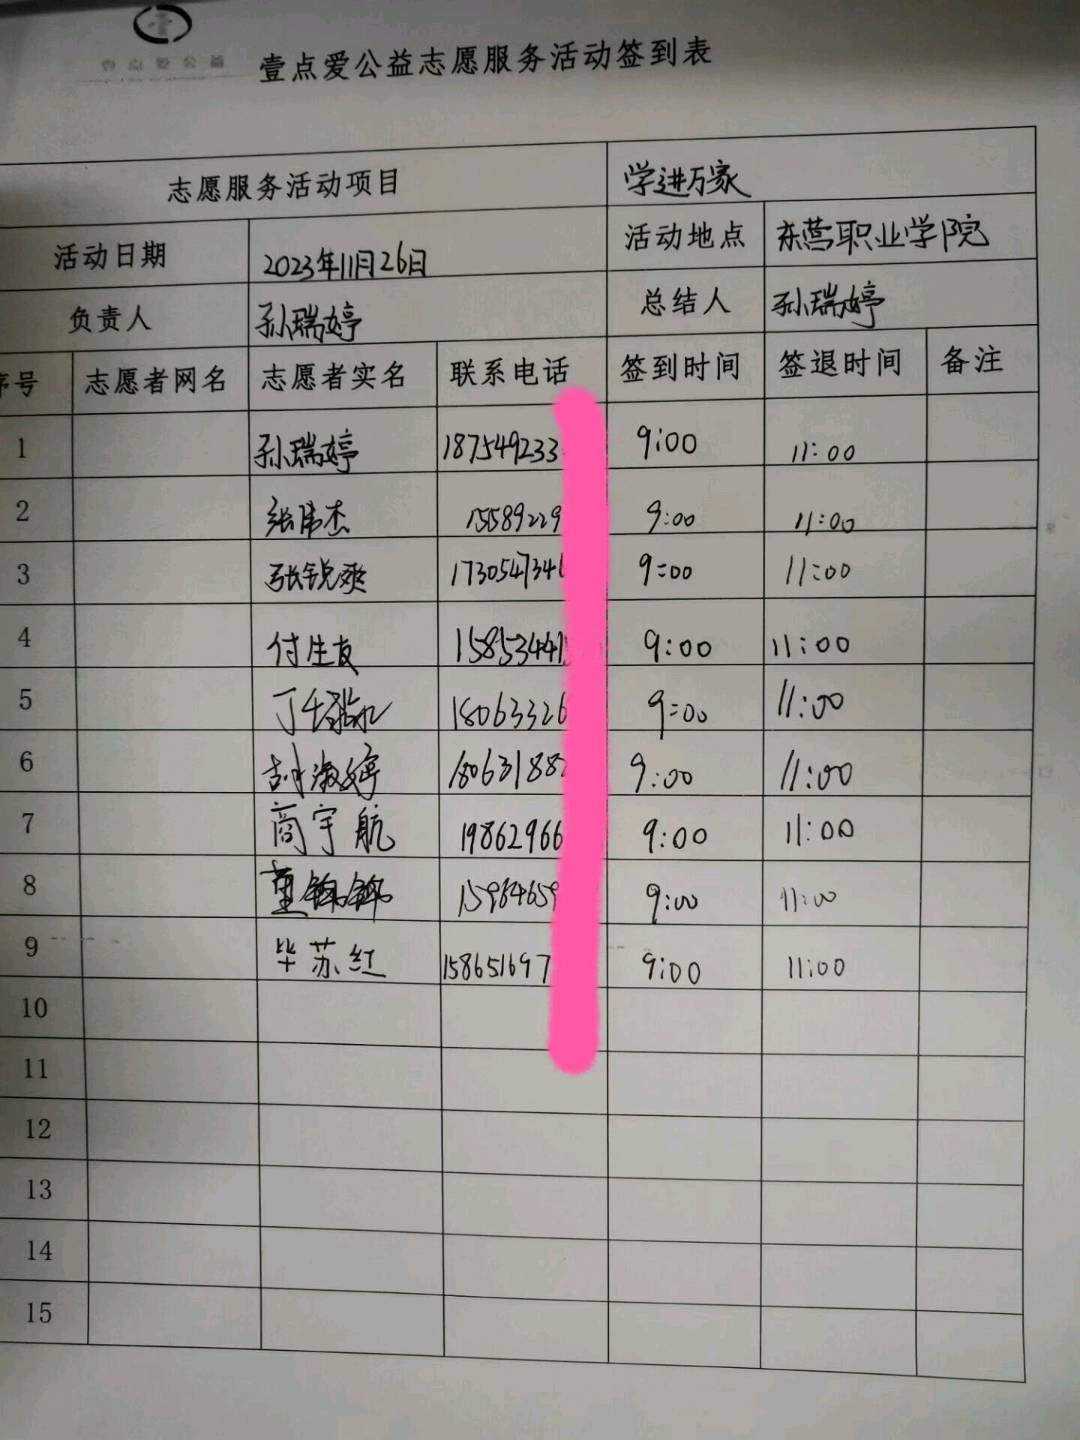 壹点爱公益
壹点爱公益志愿服务活动签到表
志愿服务活动项目 学进万家
活动日期 2023年11月26日 活动地点 东营职业学院
负责人 孙瑞婷 总结人 孙瑞婷
序号 志愿者网名 志愿者实名 联系电话 签到时间 签退时间 备注
1 孙瑞婷 187549233 9:00 11:00
2 张伟杰 15589229 9:00 11:00
3 张锐爽 1730547346 9:00 11:00
4 付生友 158534415 9:00 11:00
5 18063326 9:00 11:00
6 胡淑婷 180631882 9:00 11:00
7 商宇航 19862966 9:00 11:00
8 董锦锦 15964659 9:00 11:00
9 毕苏红 158651697 9:00 11:00
10
11
12
13
14
15